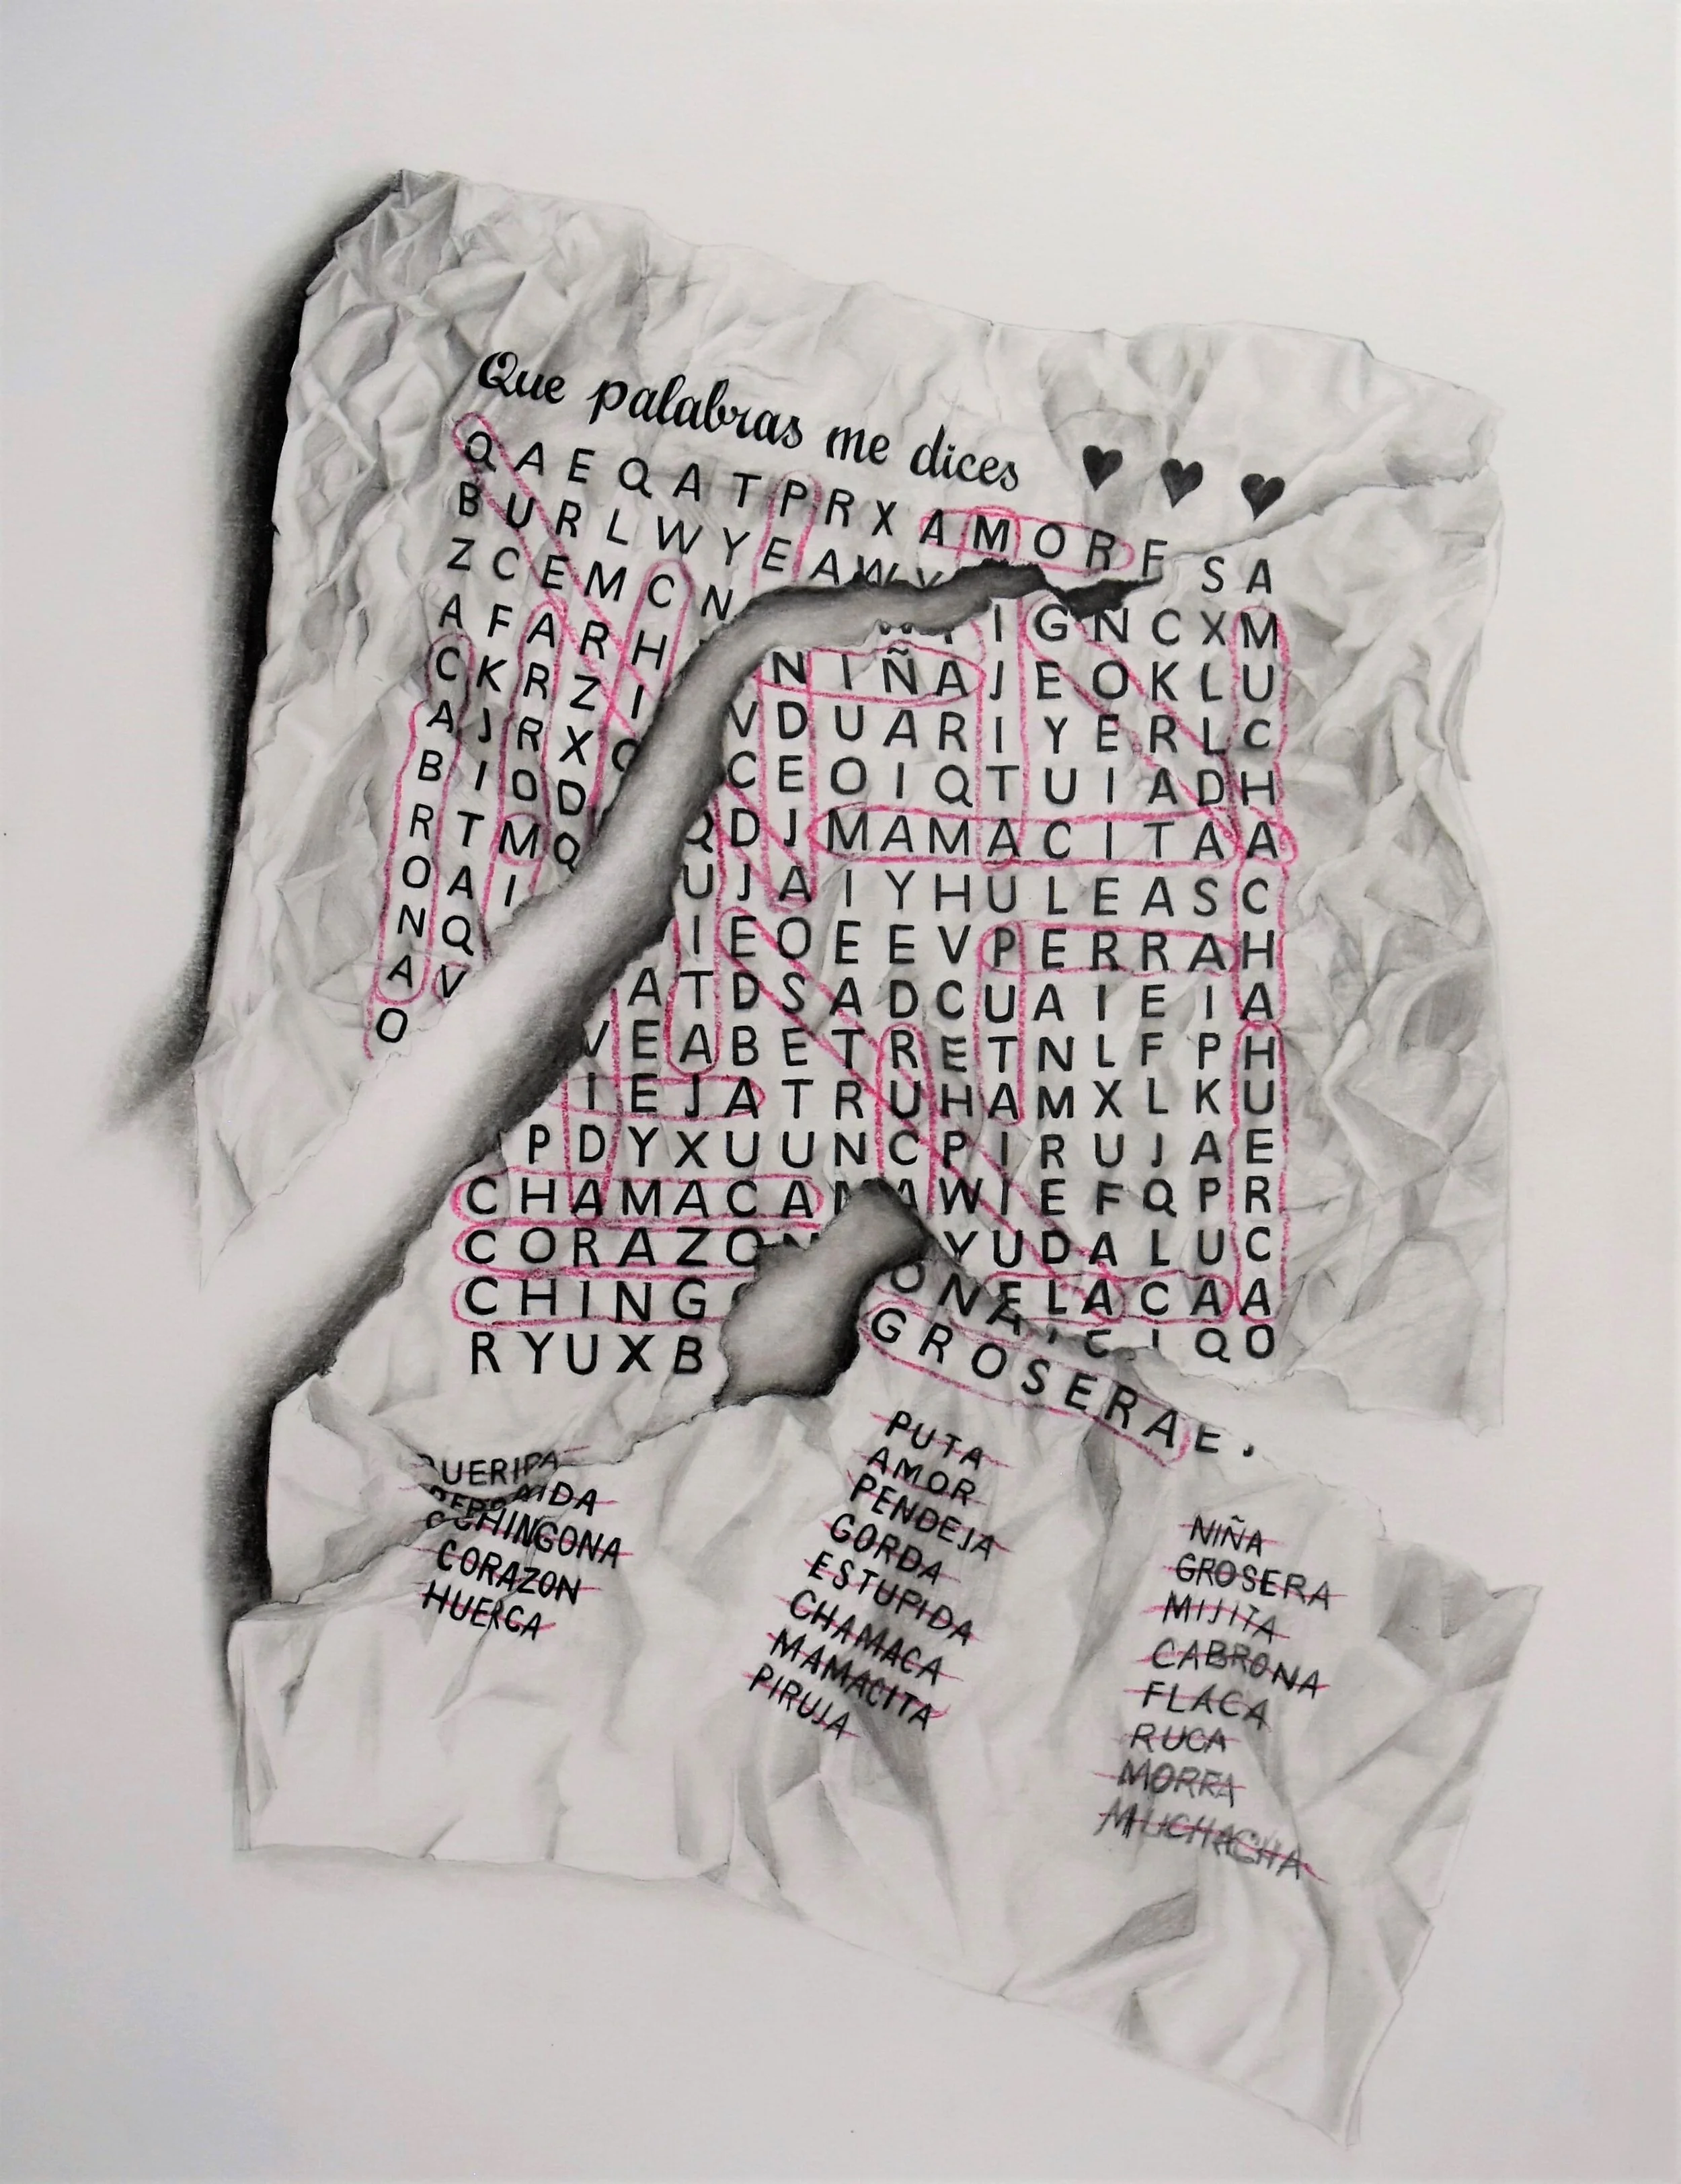 Que palabras me dices
Q A E Q A T P R X A M O R F S A
B U R L W Y E A W
Z C E M C N I G N C X M
A F A R H N I Ñ A J E O K L U
C K R Z I V D U A R I Y E R L C
A J R X C E O I Q T U I A D H
B I O D Q D J M A M A C I T A A
R T M Q U J A I Y H U L E A S C
O A I I E O E E V P E R R A H
N Q A T D S A D C U A I E I A
A V V E A B E T R E T N L F P H
O I E J A T R U H A M X L K U
P D Y X U U N C P I R U J A E
C H A M A C A A W I E F Q P R
C O R A Z O N Y U D A L U C
C H I N G O N A E L A C A A
R Y U X B C I Q O
G R O S E R A E
QUERIDA
CHINGONA
CORAZON
HUERCA
PUTA
AMOR
PENDEJA
GORDA
ESTUPIDA
CHAMACA
MAMACITA
PIRUJA
NIÑA
GROSERA
MIJITA
CABRONA
FLACA
RUCA
MORRA
MUCHACHA